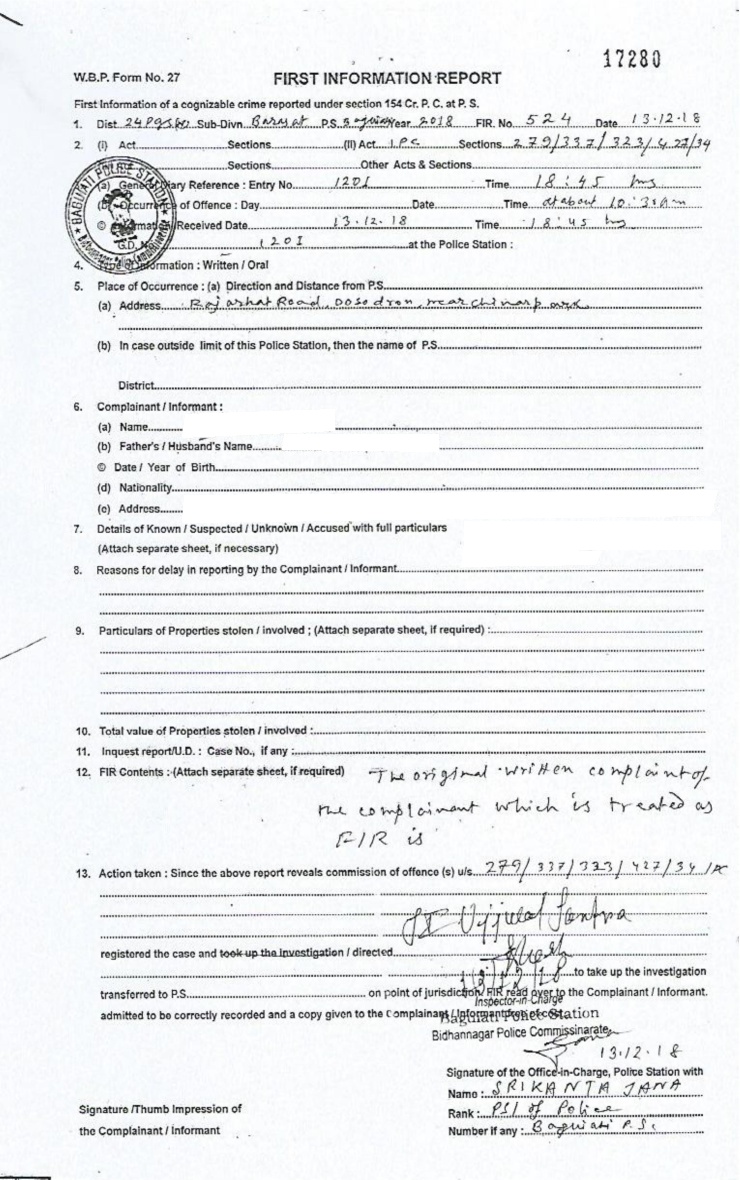 17280
W.B.P. Form No. 27 FIRST INFORMATION REPORT
First Information of a cognizable crime reported under section 154 Cr. P. C. at P. S.
1. Dist 24 Pgs Sub-Divn. Barasat P.S. Year 2018 FIR. No. 524 Date 13.12.18
2. (i) Act Sections (II) Act I.P.C Sections 279/337/323/427/34
Sections Other Acts & Sections
BAGUIATI POLICE STATION
(a) General Diary Reference : Entry No. 1201 Time 18:45 hrs
(b) Occurrence of Offence : Day Date Time at about 10:30am
© Information Received Date 13.12.18 Time 18:45 hrs
G.D. No. 1201 at the Police Station :
4. Information : Written / Oral
5. Place of Occurrence : (a) Direction and Distance from P.S.
(a) Address Rajarhat Road, near chinarpark
(b) In case outside limit of this Police Station, then the name of P.S.
District
6. Complainant / Informant :
(a) Name
(b) Father's / Husband's Name
© Date / Year of Birth
(d) Nationality
(e) Address
7. Details of Known / Suspected / Unknown / Accused with full particulars
(Attach separate sheet, if necessary)
8. Reasons for delay in reporting by the Complainant / Informant
9. Particulars of Properties stolen / involved ; (Attach separate sheet, if required) :
10. Total value of Properties stolen / involved :
11. Inquest report/U.D. : Case No., if any :
12. FIR Contents : (Attach separate sheet, if required) The original written complaint of
the complainant which is treated as
FIR is
13. Action taken : Since the above report reveals commission of offence (s) u/s. 279/337/323/427/34 IPC
SI Ujjwal Santra
registered the case and took up the Investigation / directed
13/12/18 to take up the investigation
transferred to P.S. on point of jurisdiction. FIR read over to the Complainant / Informant.
Inspector-in-Charge
admitted to be correctly recorded and a copy given to the Complainant / Informant free of cost.
Baguiati Police Station
Bidhannagar Police Commissinarate
13.12.18
Signature of the Office-in-Charge, Police Station with
Name : SRIKANTA JANA
Signature /Thumb Impression of
Rank : PSI of Police
the Complainant / Informant
Number if any : Baguiati P.S.